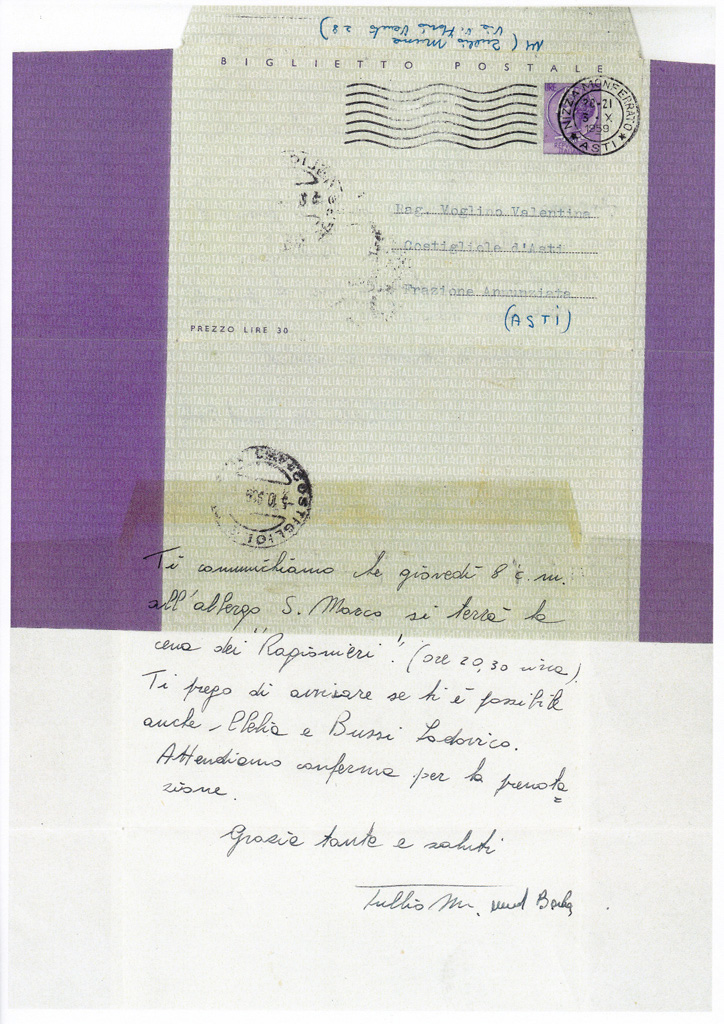 BIGLIETTO POSTALE
NIZZA MONFERRATO
20-21
X
1959
ASTI
Rag. Voglino Valentina
Costigliole d'Asti
Frazione Annunziata
(ASTI)
PREZZO LIRE 30
COSTIGLIOLE
Ti comunichiamo che giovedì 8 c.m.
all'albergo S. Marco si terrà la
cena dei "Ragionieri". (ore 20,30 circa).
Ti prego di avvisare se ti è possibile
anche e Bussi Lodovico.
Attendiamo conferma per la prenota=
zione.
Grazie tante e saluti
Tullio M.